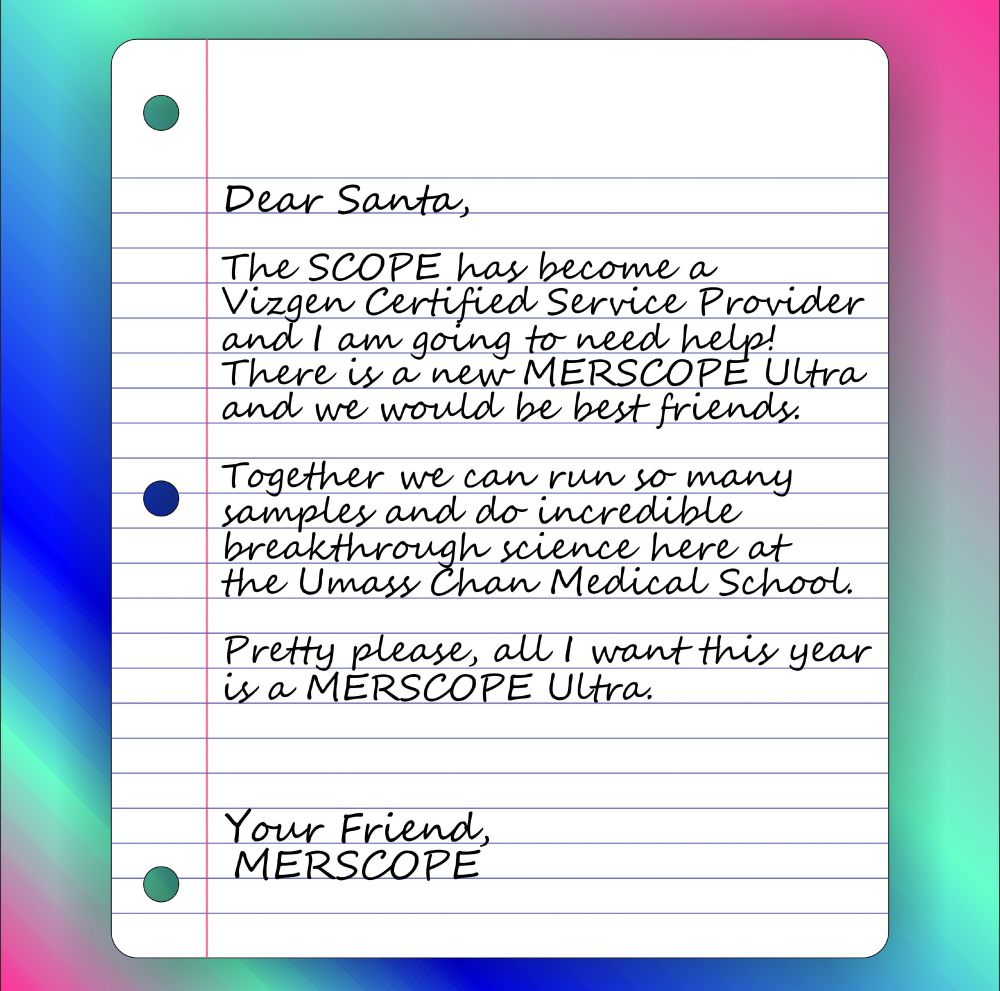 Dear Santa,
The SCOPE has become a
Vizgen Certified Service Provider
and I am going to need help!
There is a new MERSCOPE Ultra
and we would be best friends.
Together we can run so many
samples and do incredible
breakthrough science here at
the Umass Chan Medical School.
Pretty please, all I want this year
is a MERSCOPE Ultra.
Your Friend,
MERSCOPE